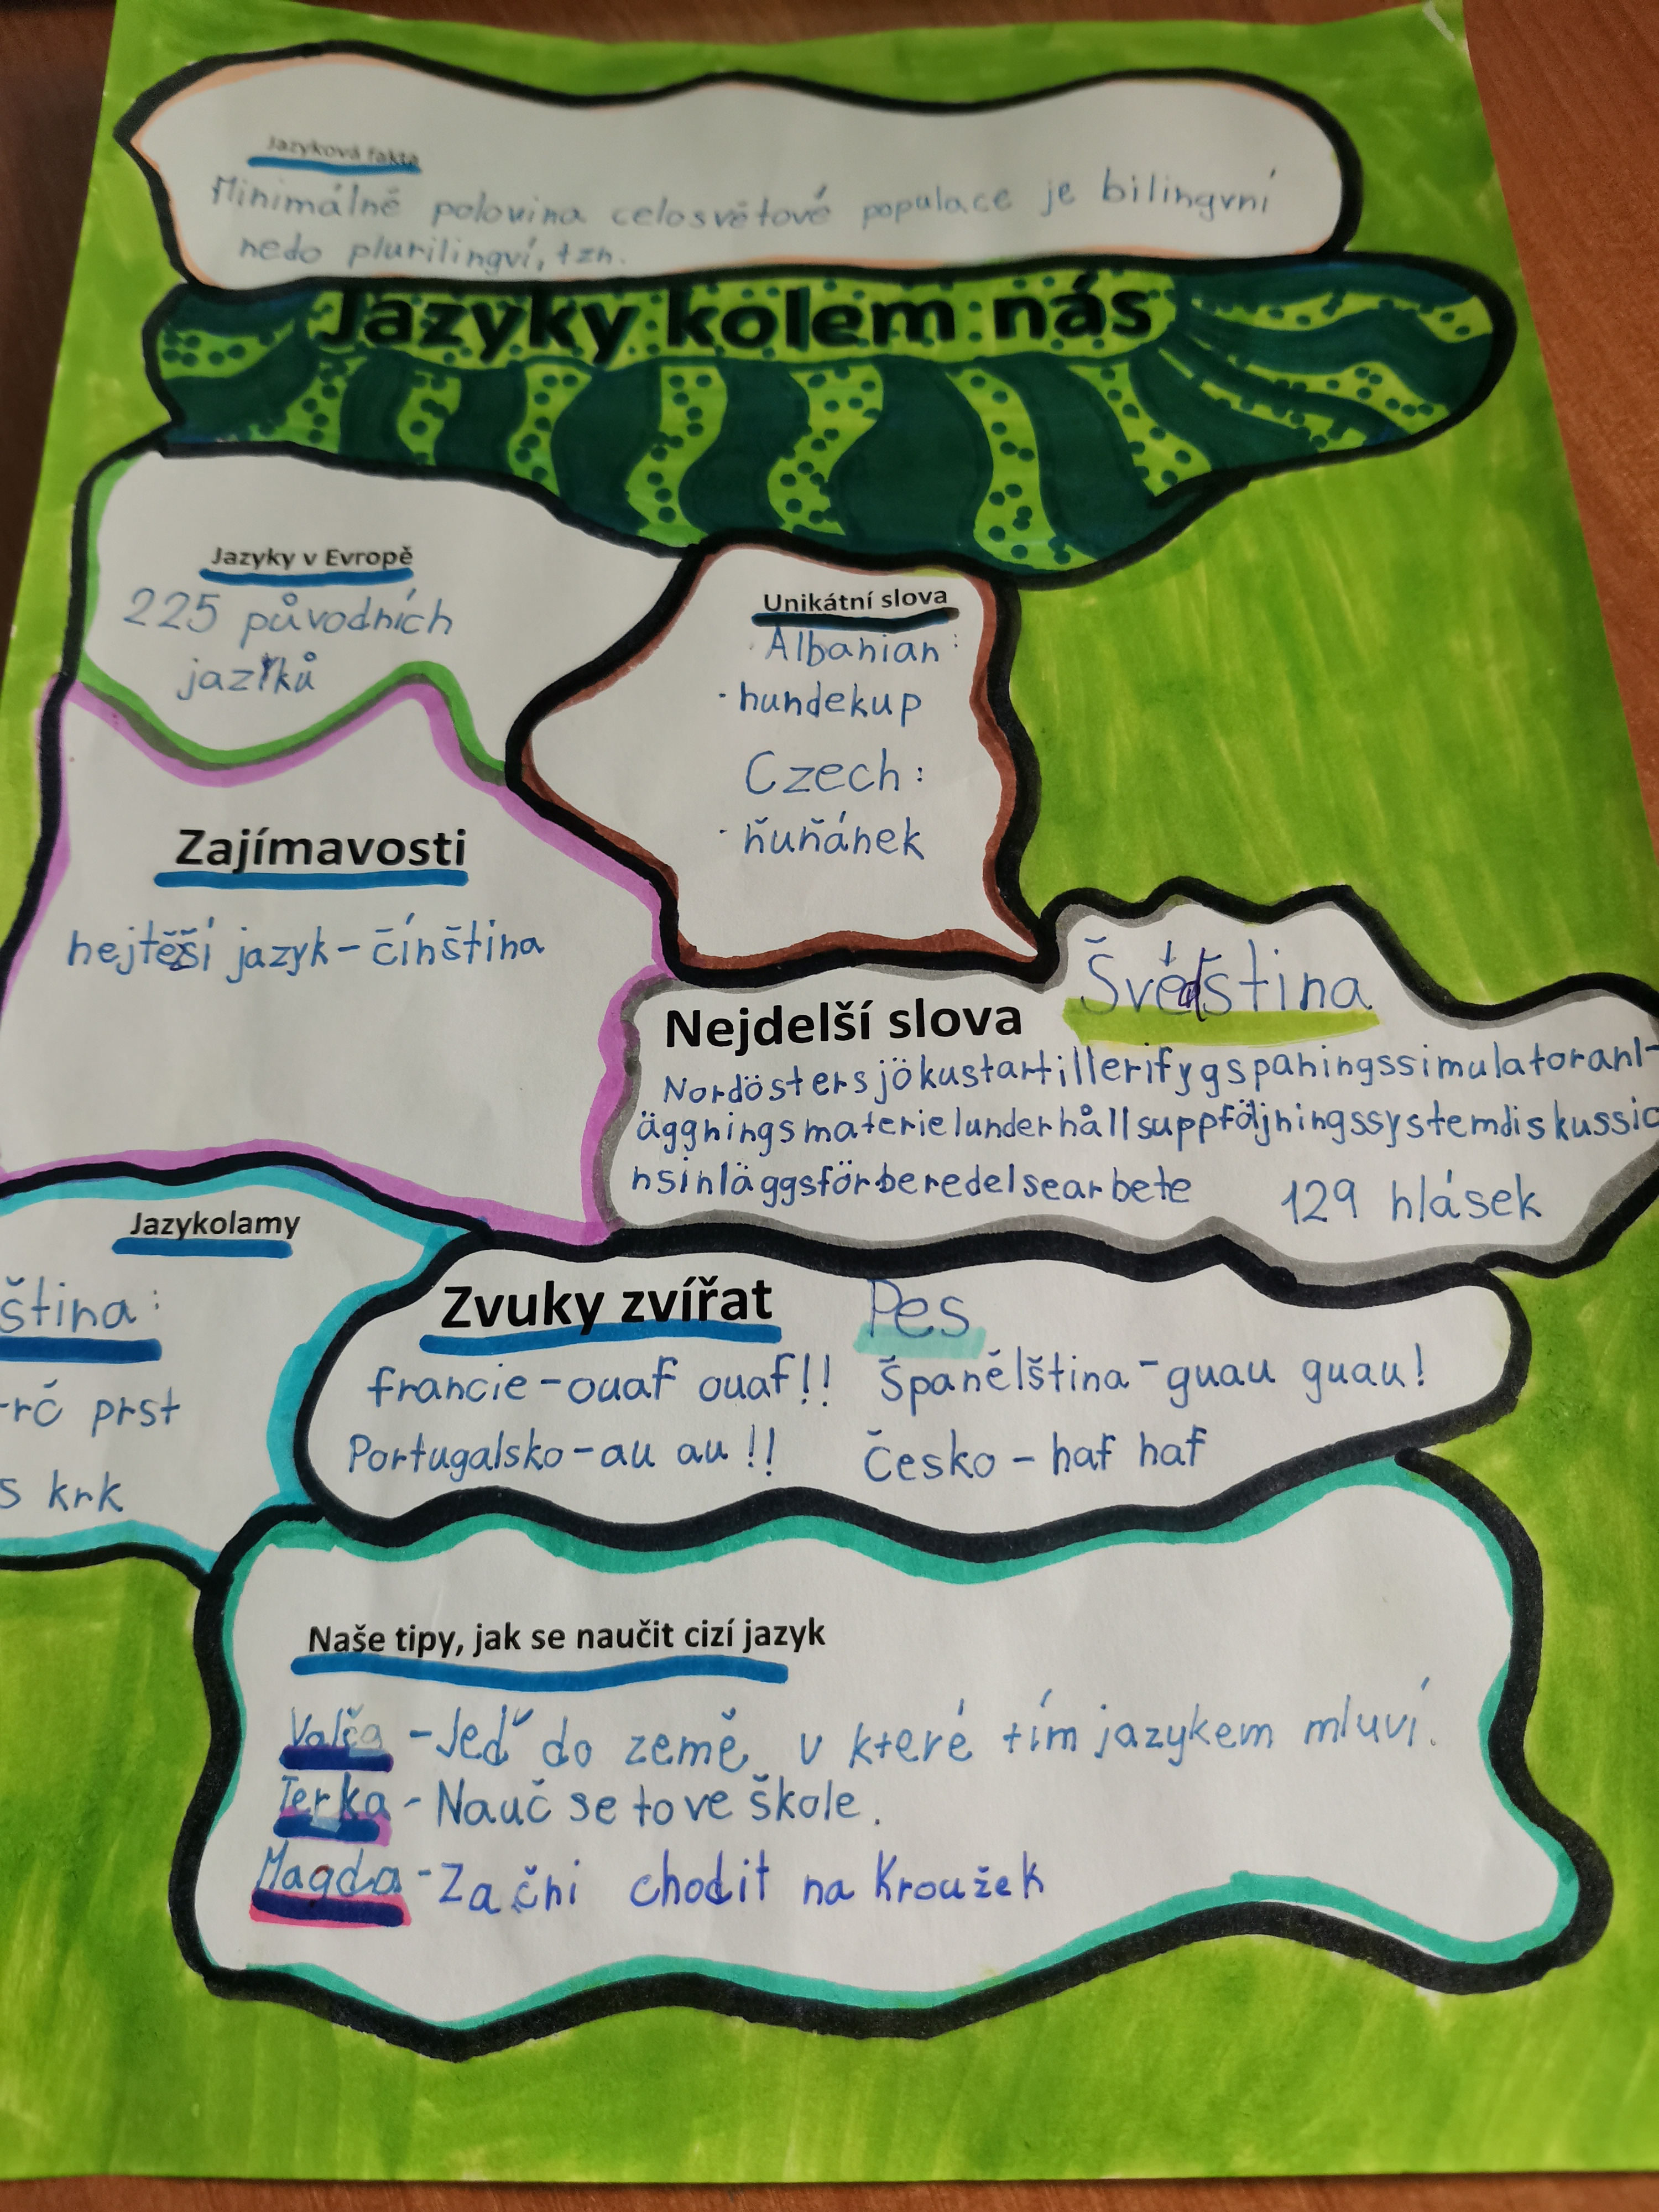 Jazyková fakta
Minimálně polovina celosvětové populace je bilingvní
nedo plurilingví, tzn.
Jazyky kolem nás
Jazyky v Evropě
225 původních
jazyků
Unikátní slova
Albanian:
- hundekup
Czech:
- ňuňánek
Zajímavosti
nejtěší jazyk - čínština
Nejdelší slova Švédština
Nordöstersjökustartillerifygspaningssimulatoranl-
äggningsmaterielunderhållsuppföljningssystemdiskussio
nsinläggsförberedelsearbete 129 hlásek
Jazykolamy
ština:
-rč prst
s krk
Zvuky zvířat Pes
francie - ouaf ouaf!! Španělština - guau guau!
Portugalsko - au au!! Česko - haf haf
Naše tipy, jak se naučit cizí jazyk
Valča - Jeď do země, v které tím jazykem mluví.
Terka - Nauč se to ve škole.
Magda - Začni chodit na kroužek